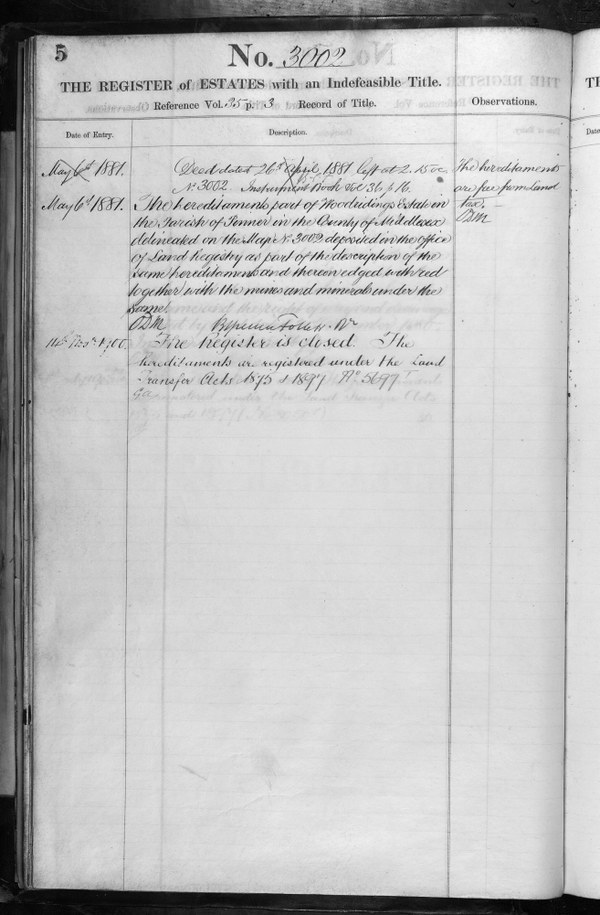 5
No. 3002
THE REGISTER of ESTATES with an Indefeasible Title.
Reference Vol. 25 p. 3 Record of Title.
Observations.
Date of Entry.
Description.
May 6th 1881.
Deed dated 26th April 1881 left at 2.15 oc
No 3002 Instrument Book Vol 36 p 16.
The hereditaments
are free from Land
Tax.
May 6th 1881.
The hereditaments part of Woodridings Estate in
the Parish of Pinner in the County of Middlesex
delineated on the Map No 3002 deposited in the office
of Land Registry as part of the description of the
same hereditaments and thereon edged with red
together with the mines and minerals under the
same.
Follett
14th Novr 1900.
The Register is closed. The
hereditaments are registered under the Land
Transfer Acts 1875 & 1897 No 5697